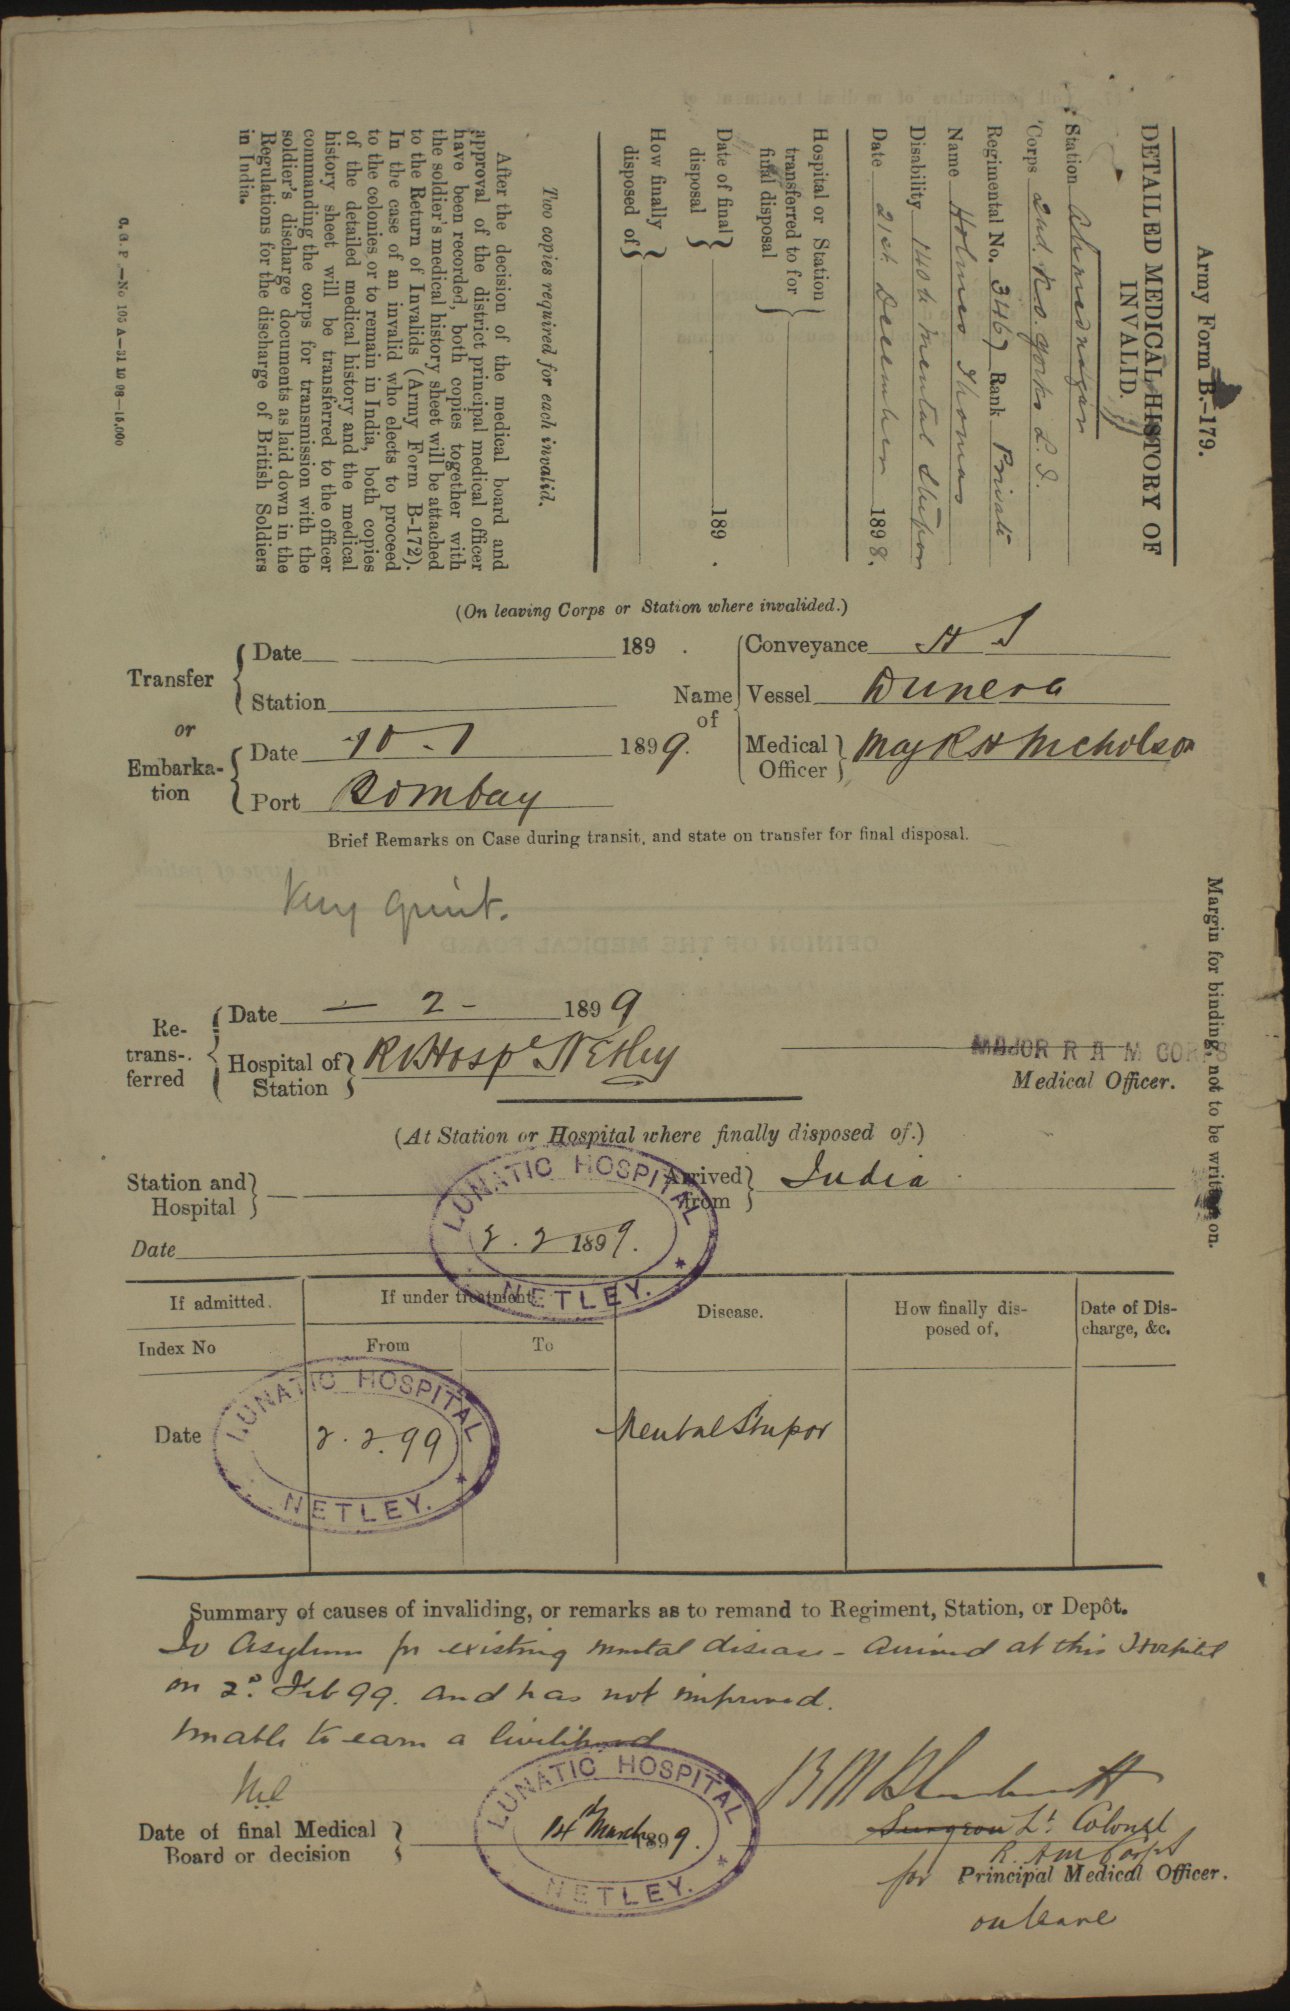 Army Form B.-179.
DETAILED MEDICAL HISTORY OF
INVALID.
Station Ahmednagar
Corps 2nd. K.O. Yorks L. I.
Regimental No. 3467 Rank Private
Name Holmes Thomas
Disability 140 b mental Stupor
Date 21st December 1898.
Hospital or Station
transferred to for
final disposal
Date of final
disposal 189 .
How finally
disposed of
Two copies required for each invalid.
After the decision of the medical board and
approval of the district principal medical officer
have been recorded, both copies together with
the soldier's medical history sheet will be attached
to the Return of Invalids (Army Form B-172).
In the case of an invalid who elects to proceed
to the colonies or to remain in India, both copies
of the detailed medical history and the medical
history sheet will be transferred to the officer
commanding the corps for transmission with the
soldier's discharge documents as laid down in the
Regulations for the discharge of British Soldiers
in India.
G. C. P.—No 105 A—31 10 98—15,000
(On leaving Corps or Station where invalided.)
Transfer
Date 189 .
Station
or
Embarka-
tion
Date 10 - 1 1899.
Port Bombay
Name
of
Conveyance H S
Vessel Dunera
Medical
Officer Maj R H Nicholson
Brief Remarks on Case during transit, and state on transfer for final disposal.
Very quiet.
Re-
trans-
ferred
Date — 2 - 1899
Hospital of
Station R V Hospl Netley
MAJOR R A M CORPS
Medical Officer.
Margin for binding, not to be written on.
(At Station or Hospital where finally disposed of.)
Station and
Hospital
Arrived
from India
Date 2 . 2 1899.
LUNATIC HOSPITAL
NETLEY.
If admitted. If under treatment. Disease. How finally dis-
posed of. Date of Dis-
charge, &c.
Index No From To
Date 2 . 2 . 99 Mental Stupor
LUNATIC HOSPITAL
NETLEY.
Summary of causes of invaliding, or remarks as to remand to Regiment, Station, or Depôt.
To Asylum for existing mental disease - arrived at this Hospital
on 2d. Feb 99. and has not improved.
Unable to earn a livelihood
Nil
Date of final Medical
Board or decision 14th March 1899.
LUNATIC HOSPITAL
NETLEY.
Surgeon Lt. Colonel
R. A M Corps
for Principal Medical Officer.
on leave